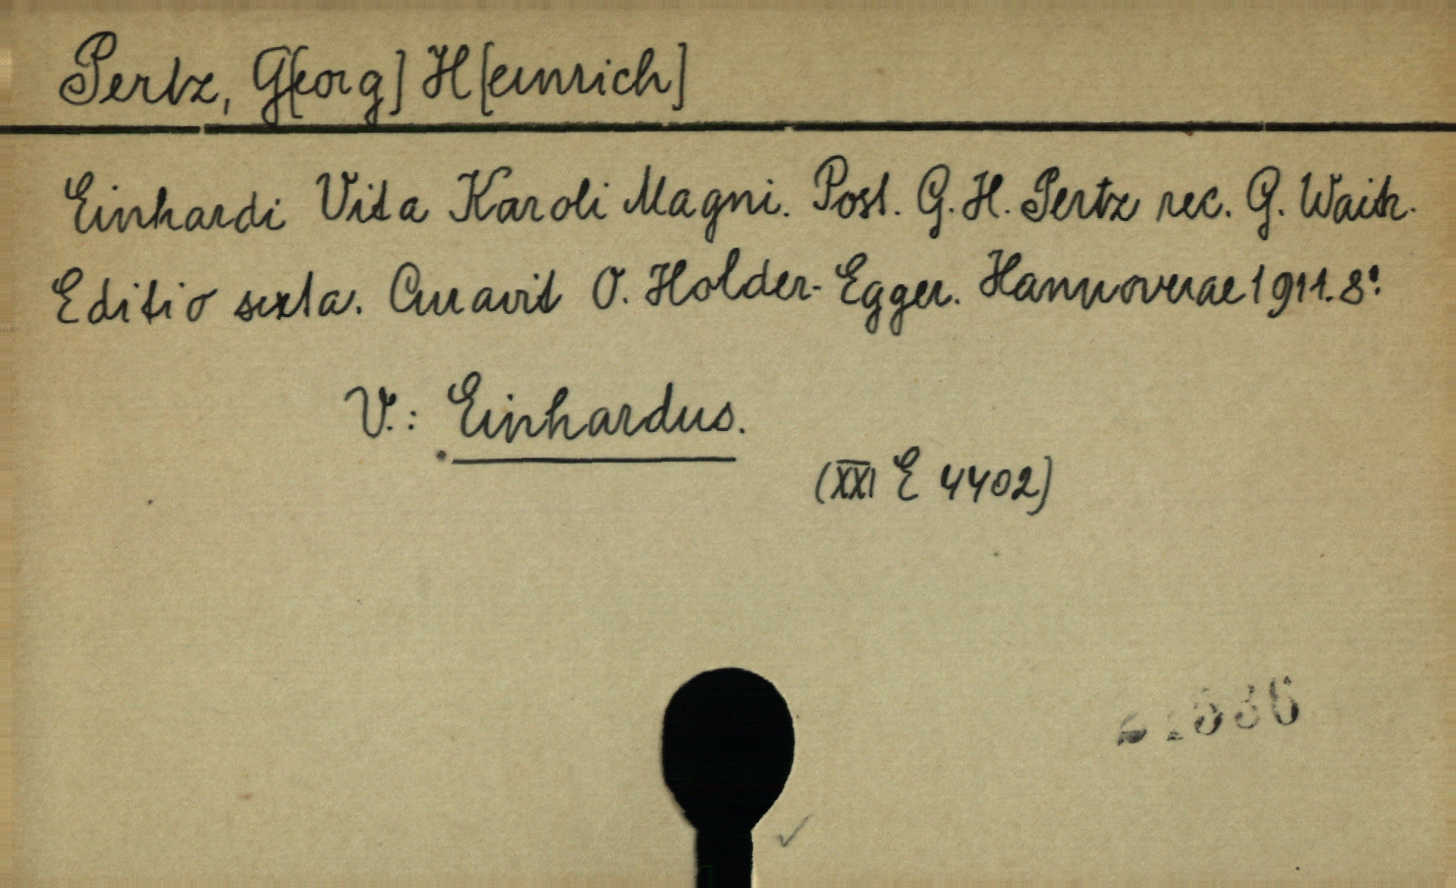 Pertz, G[eorg] H[einrich]
Einhardi Vita Karoli Magni. Post. G. H. Pertz rec. G. Waitz.
Editio sexta. Curavit O. Holder-Egger. Hannoverae 1911. 8°.
V.: Einhardus.
(XXI E 4402)